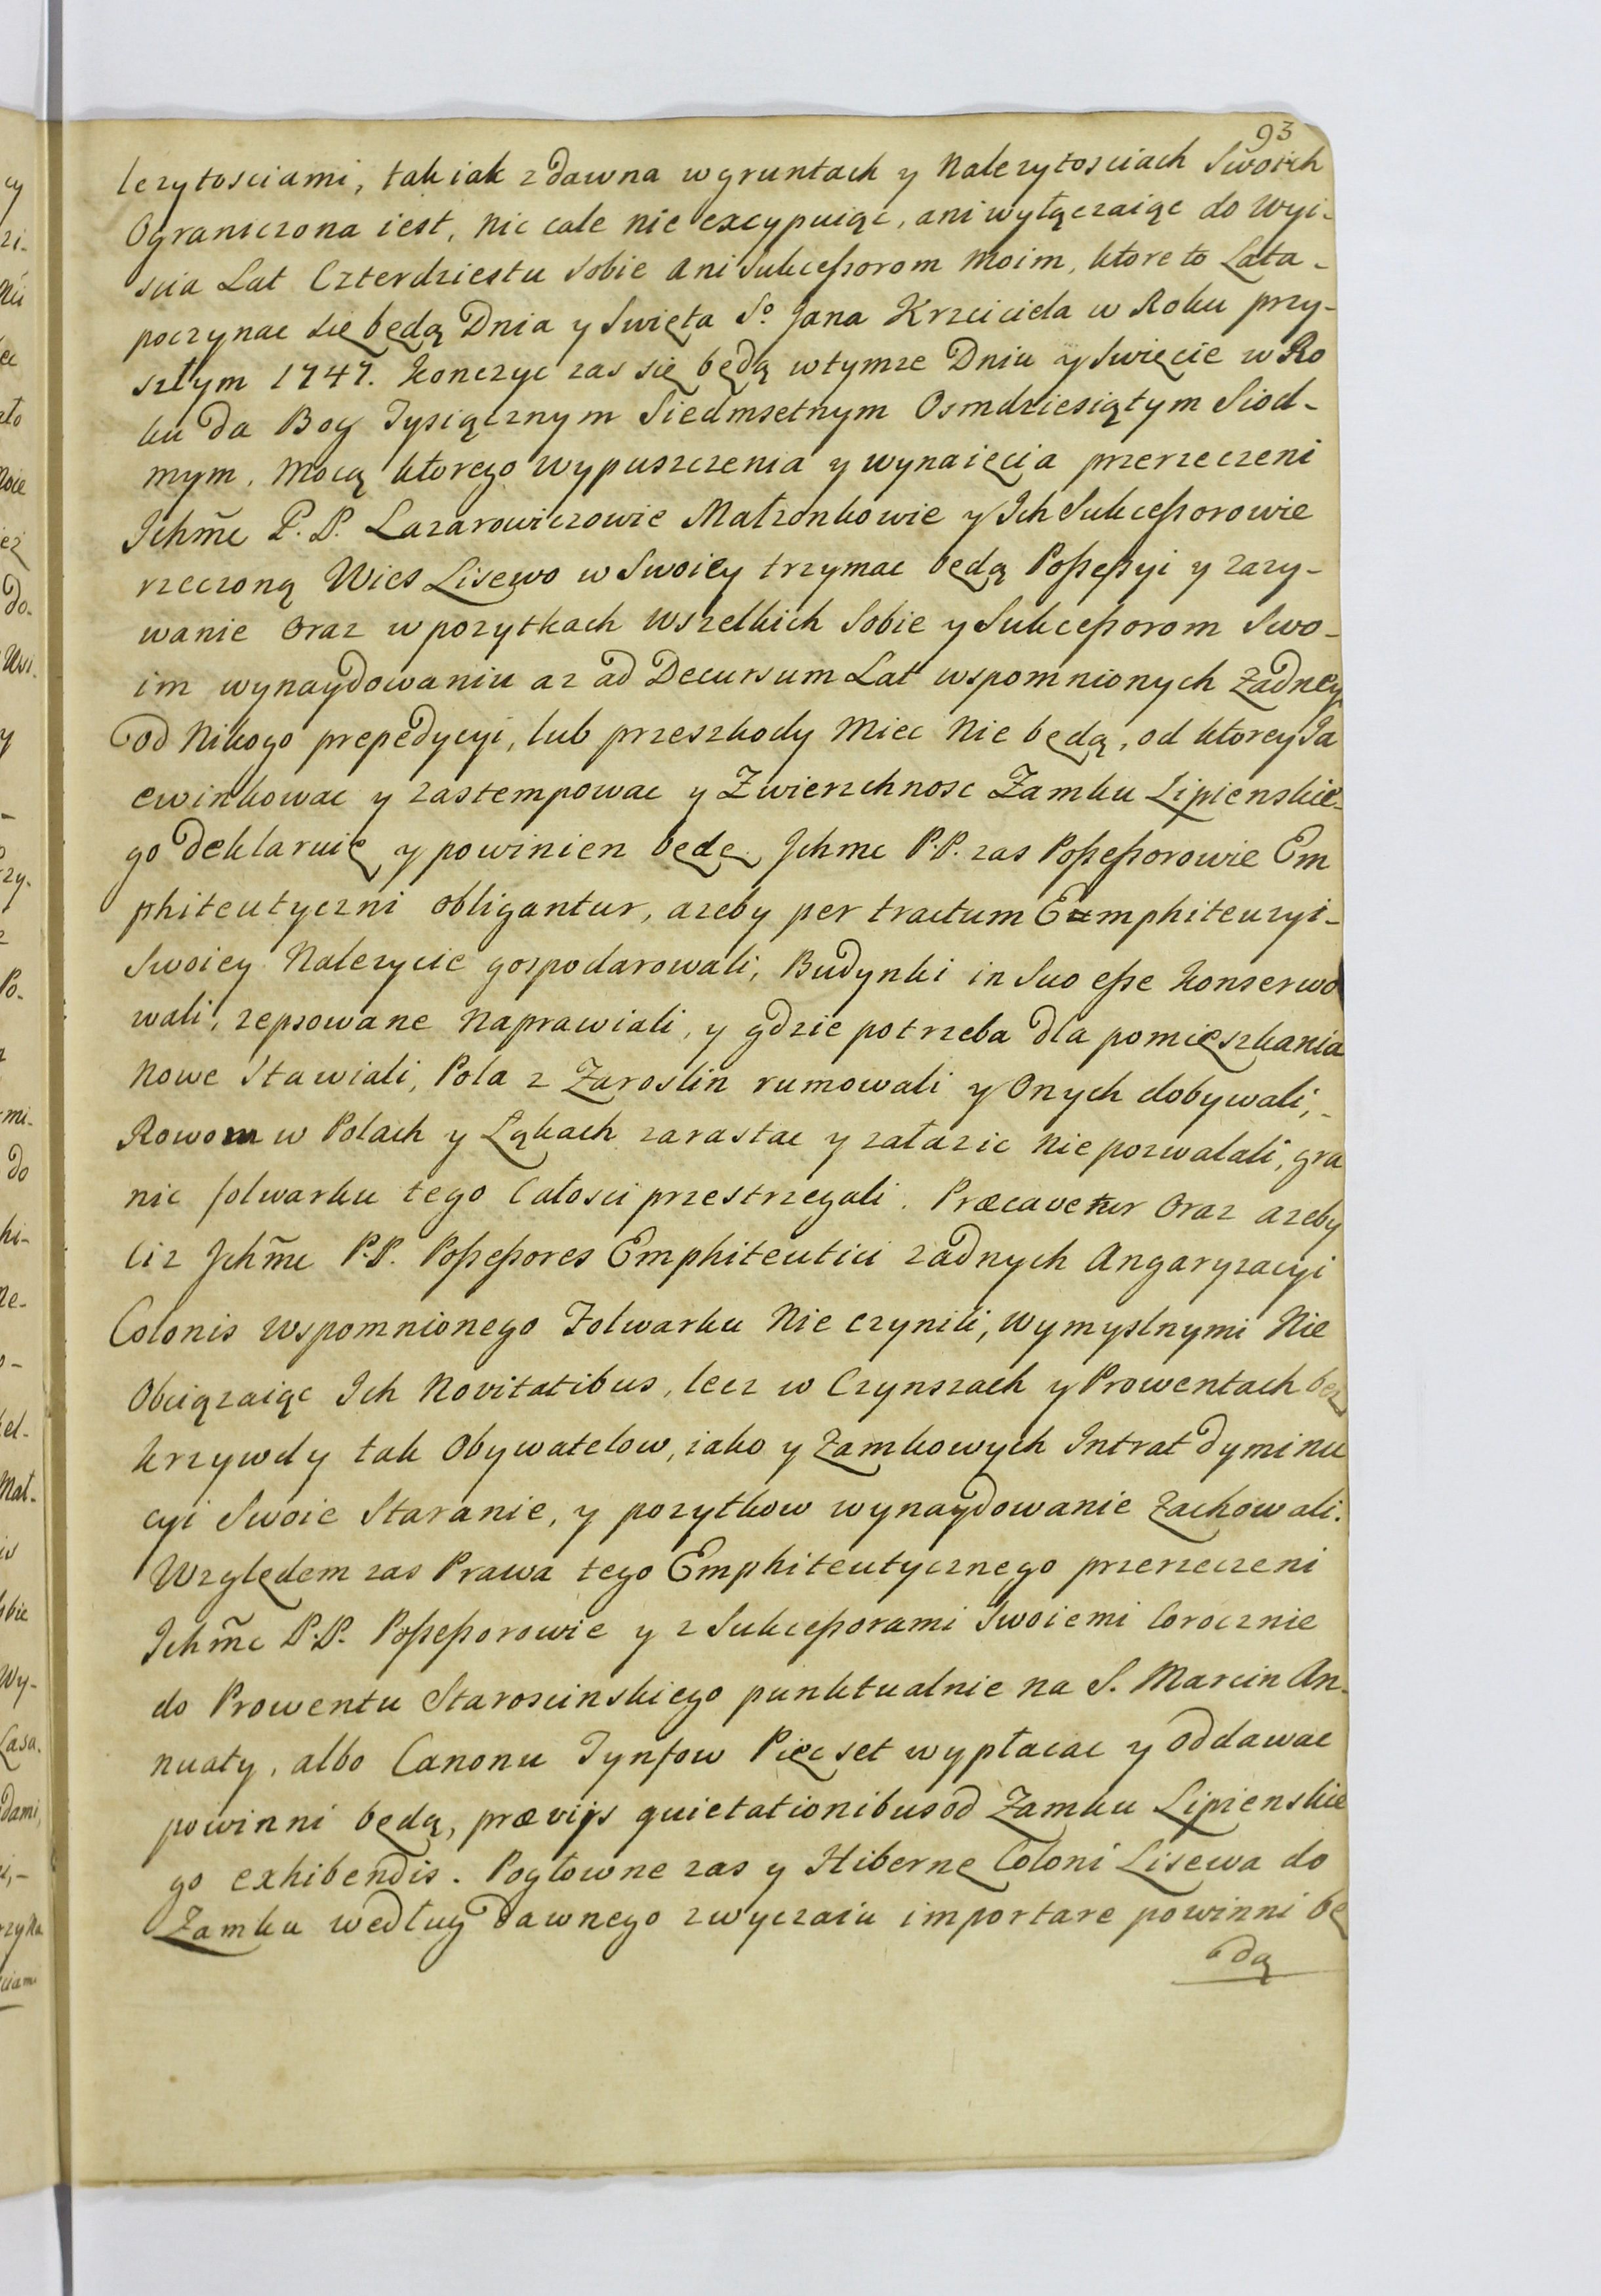 93
lezytosciami, tak iak z dawna w gruntach y Nalezytosciach Swoich
Ograniczona iest, Nic cale nie excypuiąc, ani wyłączaiąc do Wyi-
scia Lat Czterdziestu Sobie Ani Sukceßorom Moim, ktore to Lata -
poczynac się będą Dnia y Swięta So. Jana Krzciciela w Roku przy-
szłym 1747. Konczyc zas się będą w tymze Dniu y Swięcie w Ro
ku Da Bog Tysiącznym Siedmsetnym Osmdziesiątym Siod-
mym, Mocą ktorego Wypuszczenia y wynaięcia przerzeczeni
Ichm̃c P. P. Lazarowiczowie Małzonkowie y Ich Sukceßorowie
rzeczoną Wies Lisewo w Swoiey trzymac będą Poßeßyi y zazy-
wanie Oraz w pozytkach Wszelkich Sobie y Sukceßorom Swo-
im wynaydowaniu az ad Decursum Lat wspomnionych Zadney
od Nikogo prepedycyi, lub przeszkody Miec Nie będą, od ktorey Ja
ewinkowac y zastempowac y Zwierzchnosc Zamku Lipienskie-
go deklaruię y powinien będę. Jchmc P.P. zas Poßeßorowie Em
phiteutyczni obligantur, azeby per tractum Emphiteuzyi -
Swoiey Nalezycie gospodarowali, Budynki in Suo eße Konserwo
wali, zepsowane Naprawiali, y gdzie potrzeba dla pomięszkania
Nowe Stawiali, Pola z Zaroslin rumowali y Onych dobywali, -
Rowom w Polach y Łąkach zarastac y załazic Nie pozwalali, gra
nic folwarku tego Całosci przestrzegali. Præcavetur Oraz azeby
ciz Jchm̃c P.P. Poßeßores Emphiteutici zadnych Angaryzacyi
Colonis wspomnionego Folwarku Nie czynili, Wymyslnymi Nie
Obciązaiąc Ich Novitatibus, lecz w Czynszach y Prowentach bez
krzywdy tak Obywatelow, iako y Zamkowych Intrat dyminu
cyi Swoie Staranie, y pozytkow wynaydowanie Zachowali.
Względem zas Prawa tego Emphiteutycznego przerzeczeni
Jchm̃c P.P. Poßeßorowie y z Sukceßorami Swoiemi Corocznie
do Prowentu Staroscinskiego punktualnie na S. Marcin An-
nuaty, albo Canonu Tynfow Pięcset wypłacac y oddawac
powinni będą, præviis quietationibus od Zamku Lipienskie
go exhibendis. Pogłowne zas y Hibernę Coloni Lisewa do
Zamku według dawnego zwyczaiu importare powinni bę
dą